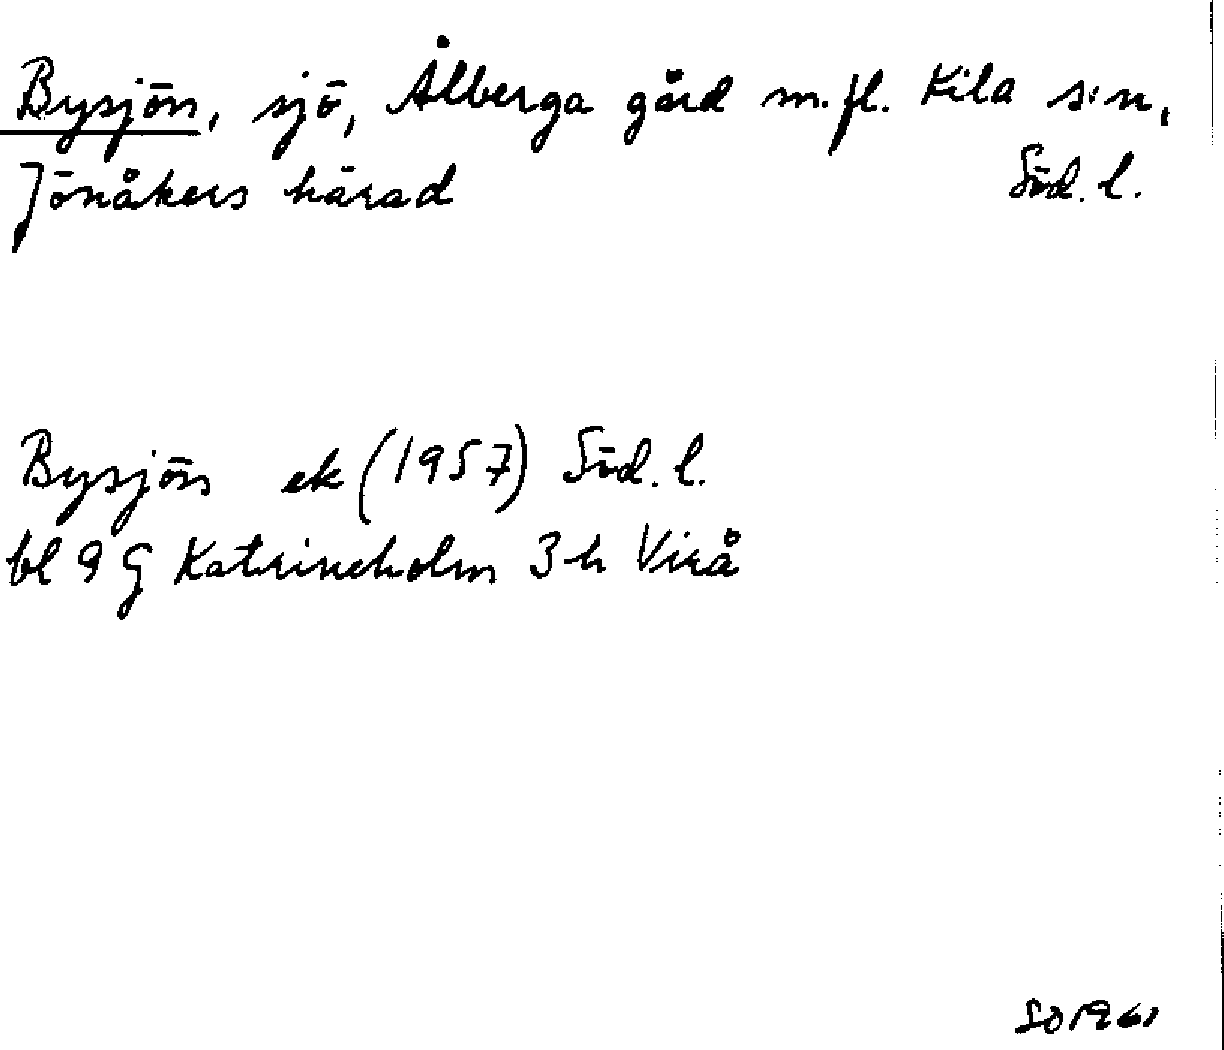 Bysjön, sjö, Ålberga gård m.fl. Kila s:n,
Jönåkers härad Söd. l.
Bysjön ek (1957) Söd. l.
bl 9 G Katrineholm 3 h Virå
SO 1961